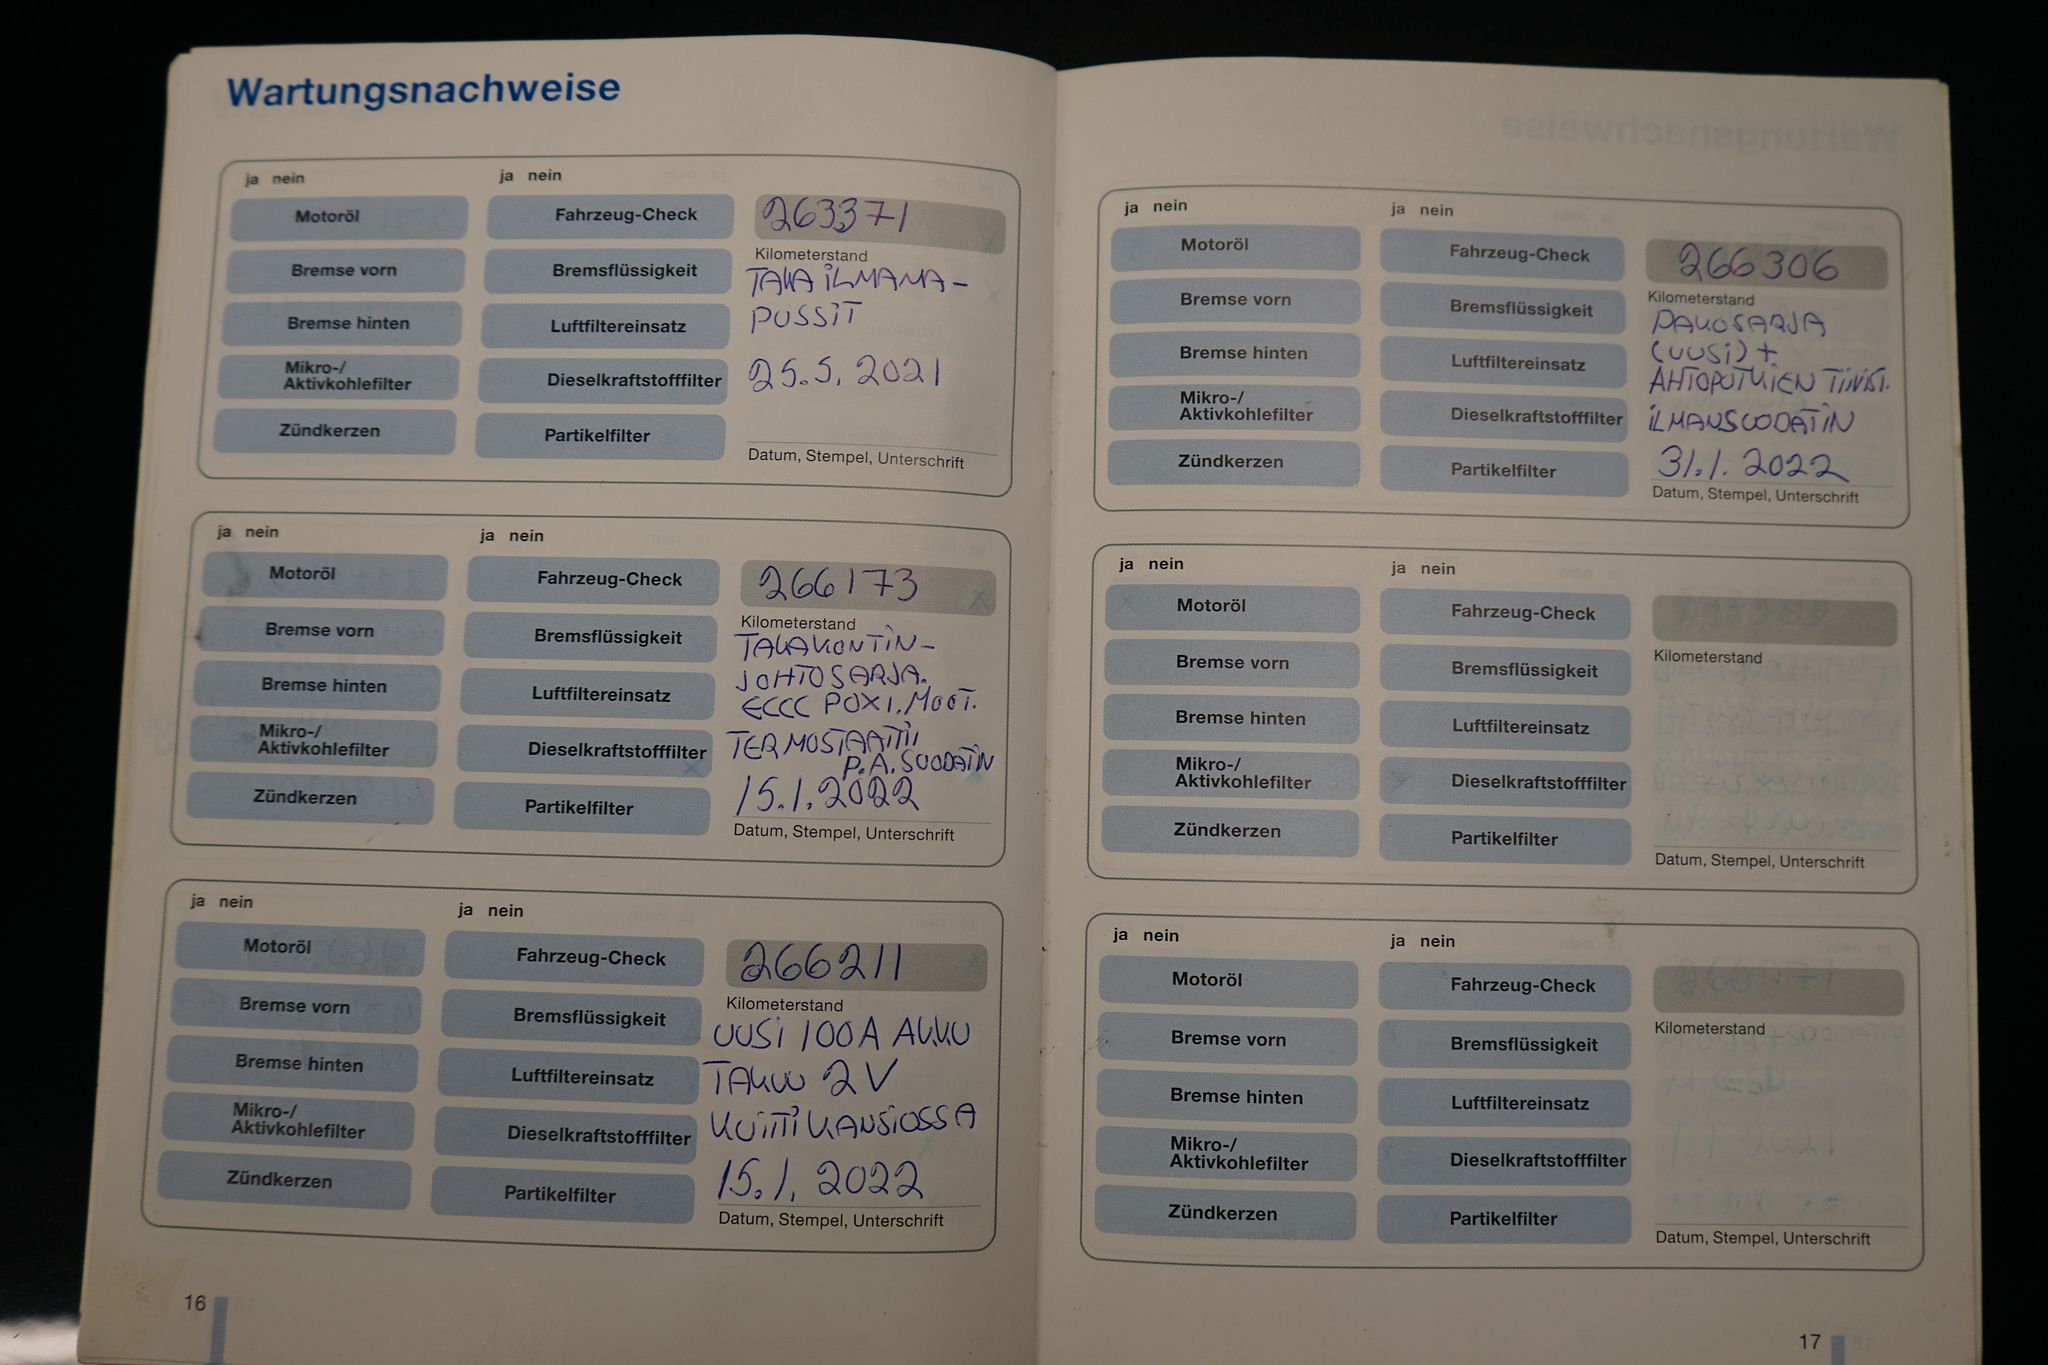 Wartungsnachweise
ja nein
ja nein
Motoröl
Fahrzeug-Check
263371
Kilometerstand
Bremse vorn
Bremsflüssigkeit
TAKA ILMAMA-
Bremse hinten
Luftfiltereinsatz
PUSSIT
Mikro-/
Aktivkohlefilter
Dieselkraftstofffilter
25.5.2021
Zündkerzen
Partikelfilter
Datum, Stempel, Unterschrift
ja nein
ja nein
Motoröl
Fahrzeug-Check
266173
Kilometerstand
Bremse vorn
Bremsflüssigkeit
TAKAKONTIN-
JOHTOSARJA.
Bremse hinten
Luftfiltereinsatz
POXI.MOOT.
Mikro-/
Aktivkohlefilter
Dieselkraftstofffilter
TERMOSTAATTI,
P.A.SUODATIN
Zündkerzen
Partikelfilter
15.1.2022
Datum, Stempel, Unterschrift
ja nein
ja nein
Motoröl
Fahrzeug-Check
266211
Kilometerstand
Bremse vorn
Bremsflüssigkeit
UUSI 100A AKKU
Bremse hinten
Luftfiltereinsatz
TAKUU 2V
Mikro-/
Aktivkohlefilter
Dieselkraftstofffilter
KUITTI KANSIOSSA
Zündkerzen
Partikelfilter
15.1.2022
Datum, Stempel, Unterschrift
16
ja nein
ja nein
Motoröl
Fahrzeug-Check
266306
Kilometerstand
Bremse vorn
Bremsflüssigkeit
PAKOSARJA
(UUSI)+
Bremse hinten
Luftfiltereinsatz
AHTOPUTKIEN TIIVIST.
Mikro-/
Aktivkohlefilter
Dieselkraftstofffilter
ILMANSUODATIN
Zündkerzen
Partikelfilter
31.1.2022
Datum, Stempel, Unterschrift
ja nein
ja nein
Motoröl
Fahrzeug-Check
Kilometerstand
Bremse vorn
Bremsflüssigkeit
Bremse hinten
Luftfiltereinsatz
Mikro-/
Aktivkohlefilter
Dieselkraftstofffilter
Zündkerzen
Partikelfilter
Datum, Stempel, Unterschrift
ja nein
ja nein
Motoröl
Fahrzeug-Check
Kilometerstand
Bremse vorn
Bremsflüssigkeit
Bremse hinten
Luftfiltereinsatz
Mikro-/
Aktivkohlefilter
Dieselkraftstofffilter
Zündkerzen
Partikelfilter
Datum, Stempel, Unterschrift
17